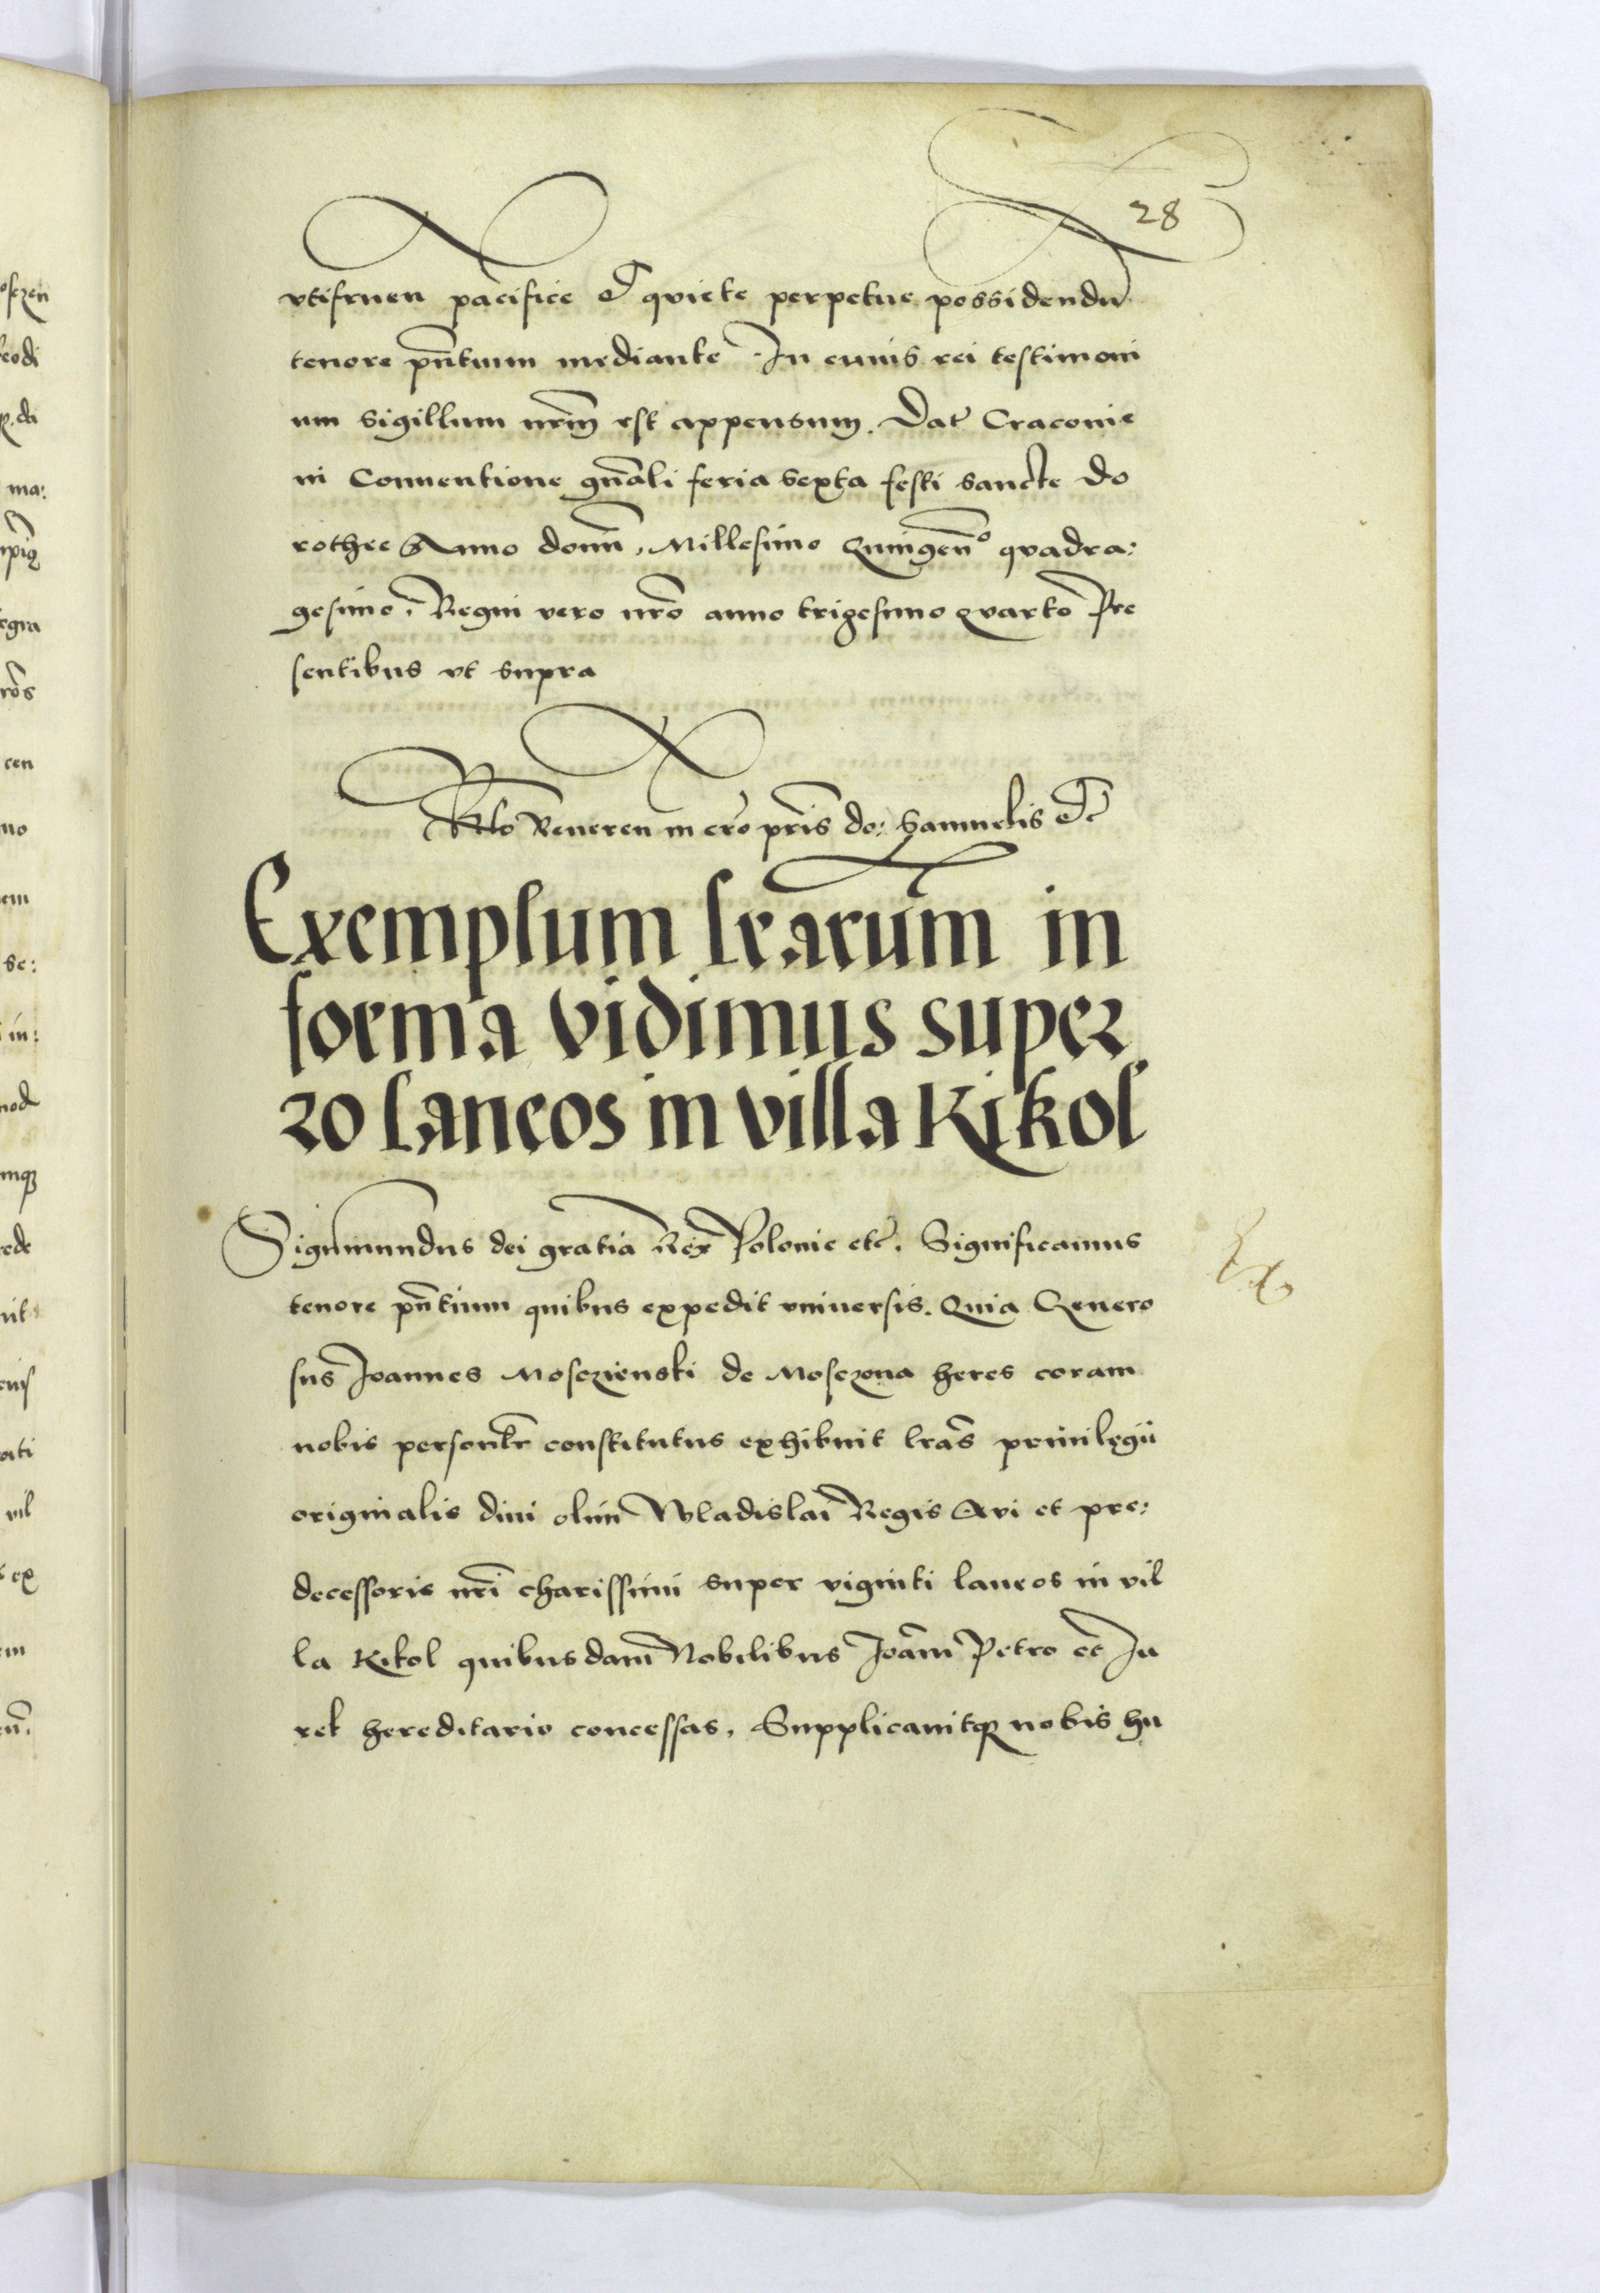 28
vtifruen pacifice et quiete perpetue possidendu
tenore pñtium mediante. In cuius rei testimoni
um sigillum nr̃m est appensum. Dat̃ Cracouie
in Conuentione gñali feria sexta festi sancte Do
rothee Anno domi. Millesimo Quingeñº quadra:
gesimo, Regni vero nrõ anno trigesimo quarto Pre
sentibus vt supra
Rtło Reueren in cr̃o pr̃is do: Samuelis etc̃
Exemplum lrarum in
forma vidimus super
20 Laneos in villa Kikol
Sigismundus dei gratia Rex Polonie etc̃. Significamus
Ex
tenore pñtium quibus expedit vniuersis. Quia Genero
sus Joannes Mosczienski de Mosczona heres coram
nobis personlr̃ constitutus exhibuit lrãs priuilegii
originalis diui olim Wladislai Regis Aui et pre:
decessoris nr̃i charissimi super viginti laneos in vil
la Kikol quibusdam Nobilibus Joãni Petro et Ja
rel hereditario concessas, Supplicauitq3 nobis hu